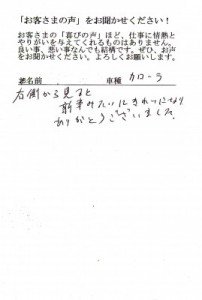 「お客さまの声」をお聞かせください！
お客さまの「喜びの声」ほど、仕事に情熱と
やりがいを与えてくれるものはありません。
良い事、悪い事なんでも結構です。ぜひ、お声
をお聞かせください。よろしくお願いします。
お名前　　　　車種　カローラ
右側から見ると
新車みたいにきれいになり
ありがとうございました。